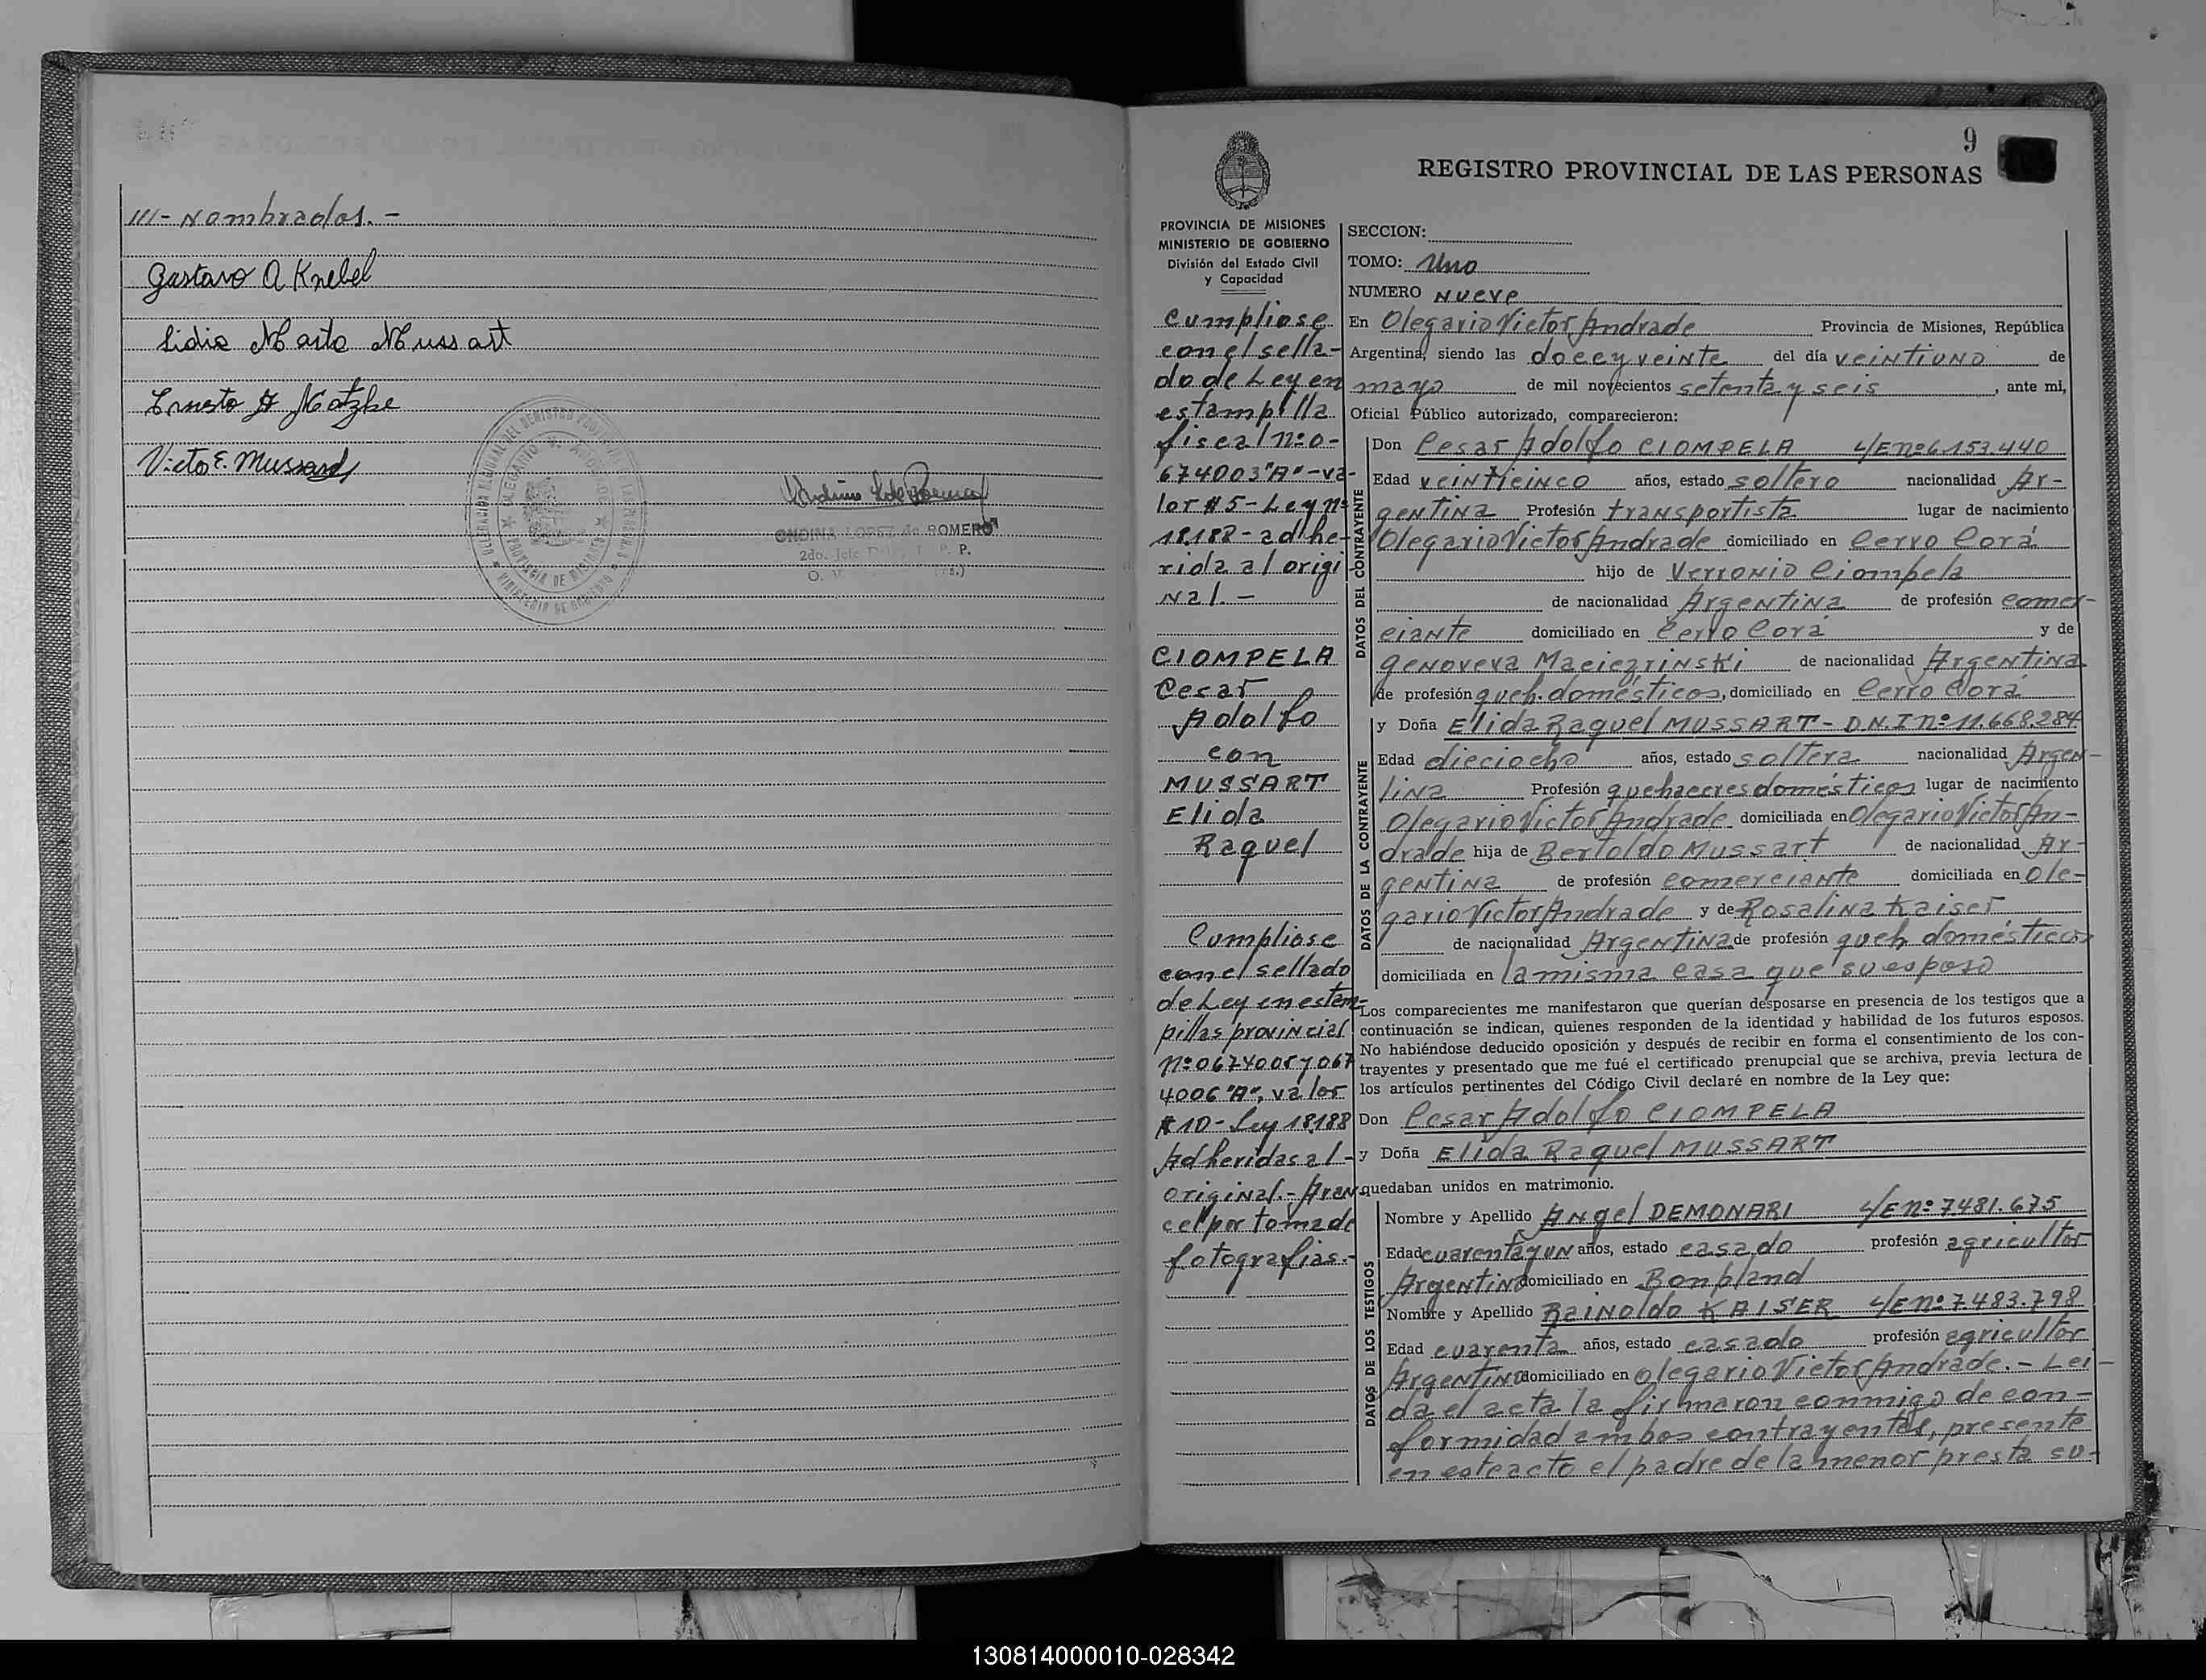 III- Nombrados. -
Gustavo A Knebel
Lidia Marta Mussart
Ernesto A
Victo E. Mussard
ONDINA LOPEZ de ROMERO
2do. Jefe
9
REGISTRO PROVINCIAL DE LAS PERSONAS
PROVINCIA DE MISIONES
MINISTERIO DE GOBIERNO
División del Estado Civil
y Capacidad
Cumpliose
con el sella-
do de Ley en
estampilla
fiscal nº 0-
674003"A"-va-
lor $ 5- Ley nº
18.188- adhe-
rida al origi
nal. -
CIOMPELA
Cesar
Adolfo
con
MUSSART
Elida
Raquel
Cumpliose
con el sellado
de Ley en estam-
pillas provincial
Nº 0674005 y 067
4006 "A", valor
$ 10- Ley 18188
Adheridas al-
original.- Aran
cel por toma de
fotografias.-
SECCION:
TOMO: Uno
NUMERO NUEVE
En Olegario Victor Andrade Provincia de Misiones, República
Argentina, siendo las doce y veinte del día veintiuno de
mayo de mil novecientos setenta y seis, ante mi,
Oficial Público autorizado, comparecieron:
DATOS DEL CONTRAYENTE
Don Cesar Adolfo CIOMPELA L/E nº 6.153.440
Edad veinticinco años, estado soltero nacionalidad Ar-
gentina Profesión transportista lugar de nacimiento
Olegario Victor Andrade domiciliado en Cerro Corá
hijo de Verronio Ciompela
de nacionalidad Argentina de profesión comer-
ciante domiciliado en Cerro Corá y de
Genoveva de nacionalidad Argentina
de profesión queh. domésticos, domiciliado en Cerro Corá
DATOS DE LA CONTRAYENTE
y Doña Elida Raquel MUSSART - D.N.I nº 11.668.284
Edad dieciocho años, estado soltera nacionalidad Argen-
tina Profesión quehaceres domésticos lugar de nacimiento
Olegario Victor Andrade domiciliada en Olegario Victor An-
drade hija de Bertoldo Mussart de nacionalidad Ar-
gentina de profesión comerciante domiciliada en Ole-
gario Victor Andrade y de Rosalina Kaiser
de nacionalidad Argentina de profesión queh. domésticos
domiciliada en la misma casa que su esposo
Los comparecientes me manifestaron que querían desposarse en presencia de los testigos que a
continuación se indican, quienes responden de la identidad y habilidad de los futuros esposos.
No habiéndose deducido oposición y después de recibir en forma el consentimiento de los con-
trayentes y presentado que me fué el certificado prenupcial que se archiva, previa lectura de
los artículos pertinentes del Código Civil declaré en nombre de la Ley que:
Don Cesar Adolfo CIOMPELA
y Doña Elida Raquel MUSSART
quedaban unidos en matrimonio.
DATOS DE LOS TESTIGOS
Nombre y Apellido Angel DEMONARI L/E nº 7.481.675
Edad cuarenta y un años, estado casado profesión agricultor
Argentino domiciliado en Bonpland
Nombre y Apellido Reinoldo KAISER L/E nº 7.483.798
Edad cuarenta años, estado casado profesión agricultor
Argentino domiciliado en Olegario Victor Andrade. - Lei-
da el acta la firmaron conmigo de con-
formidad ambos contrayentes, presente
en este acto el padre de la menor presta su-
130814000010-028342